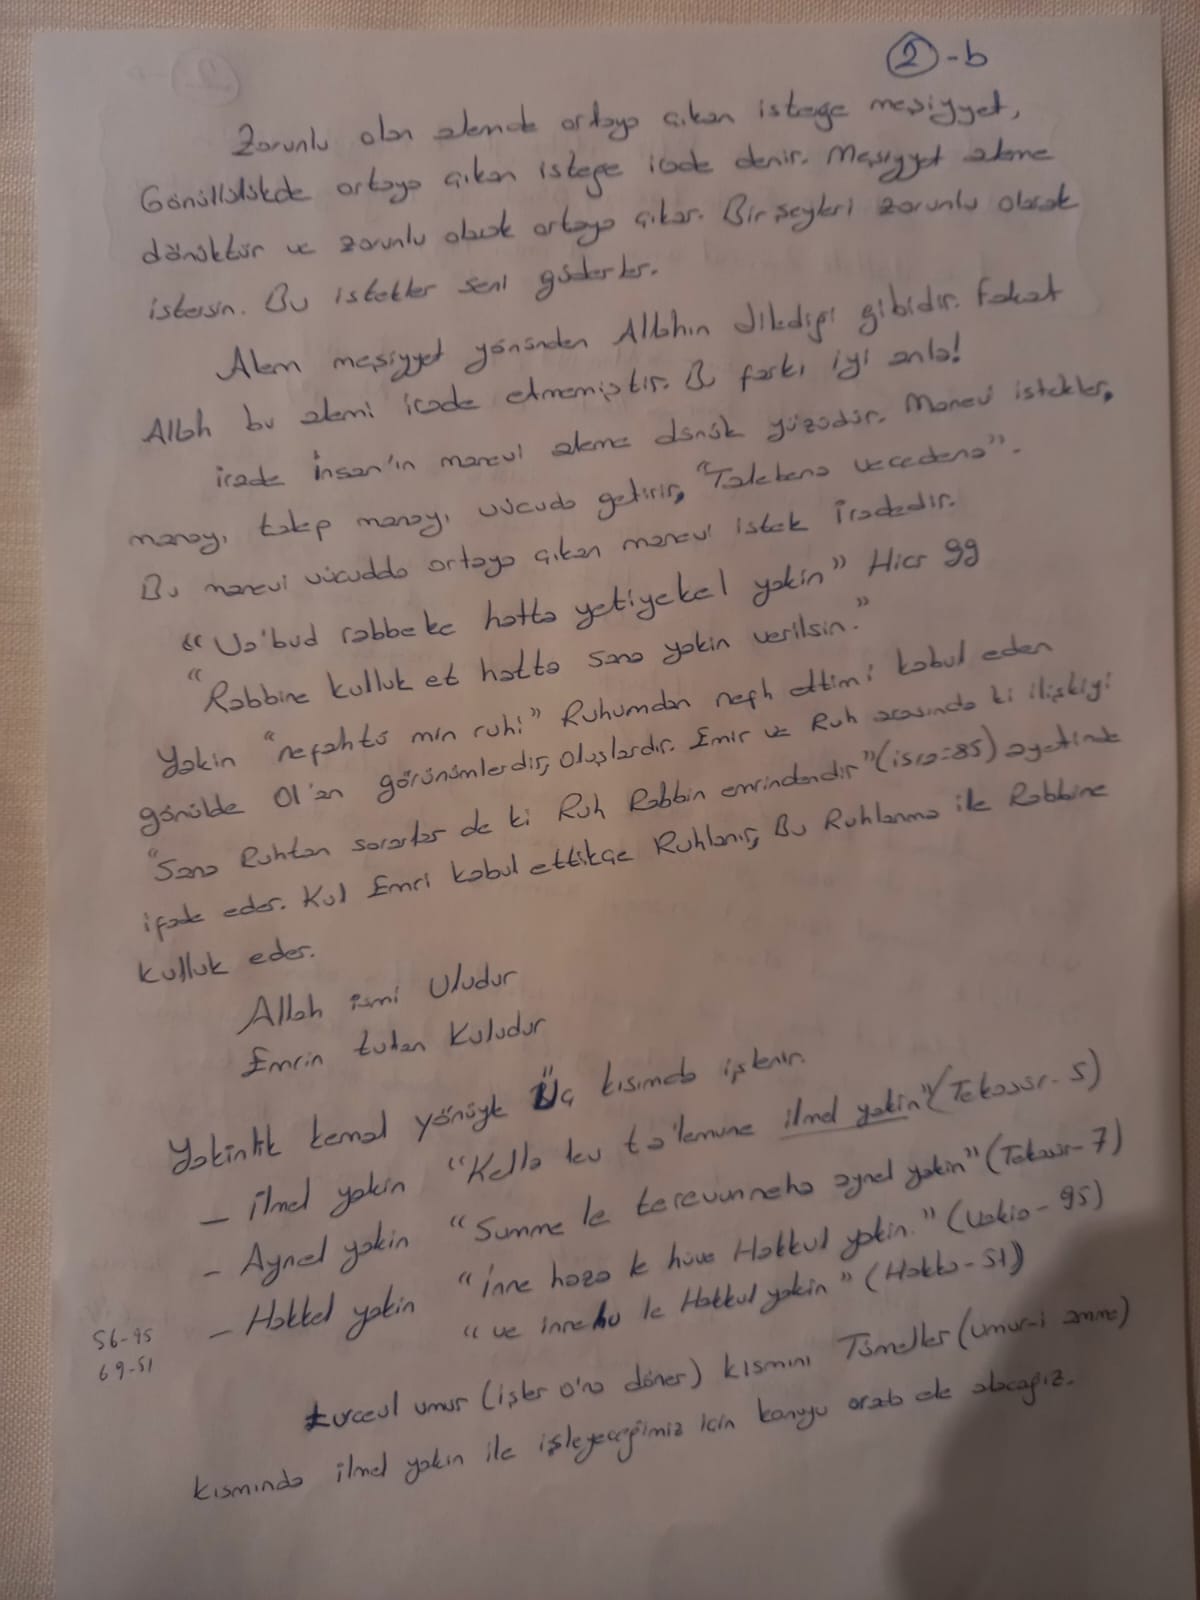 2 -b
Zorunlu olan alemde ortaya çıkan isteğe meşiyyet,
Gönüllülükde ortaya çıkan isteğe irade denir. Meşiyyet aleme
dönüktür ve zorunlu olarak ortaya çıkar. Bir şeyleri zorunlu olarak
istersin. Bu istekler seni güderler.
Alem meşiyyet yönünden Allahın dilediği gibidir. Fakat
Allah bu alemi irade etmemiştir. Bu farkı iyi anla!
İrade İnsan'ın manevi aleme dönük yüzüdür. Manevi istekler,
manayı, talep manayı vücuda getirir, "Talebena vecedena".
Bu manevi vücudda ortaya çıkan manevi istek İradedir.
"Va'bud rabbeke hatta yetiyekel yakin" Hicr 99
"Rabbine kulluk et hatta sana yakin verilsin."
Yakin "nefahtü min ruhi" Ruhumdan nefh ettim'i kabul eden
gönülde Ol'an görünümlerdir, oluşlardır. Emir ve Ruh arasında ki ilişkiyi
"Sana Ruhtan sorarlar de ki Ruh Rabbin emrindendir" (isra=85) ayetinde
ifade eder. Kul Emri kabul ettikçe Ruhlanır, Bu Ruhlanma ile Rabbine
kulluk eder.
Allah ismi Uludur
Emrin tutan Kuludur
Yakinlik kemal yönüyle Üç kısımda işlenir.
- İlmel yakin "Kella lev ta'lemune ilmel yakin" (Tekasür-5)
- Aynel yakin "Summe le terevunneha aynel yakin" (Tekasür-7)
- Hakkel yakin "İnne haza le hüve Hakkul yakin." (Vakia-95)
"ve innehu le Hakkul yakin" (Hakka-51)
56-95
69-51
turceul umur (işler O'na döner) kısmını Tümeller (umur-i amme)
kısmında ilmel yakin ile işleyeceğimiz için konuyu orada ele alacağız.